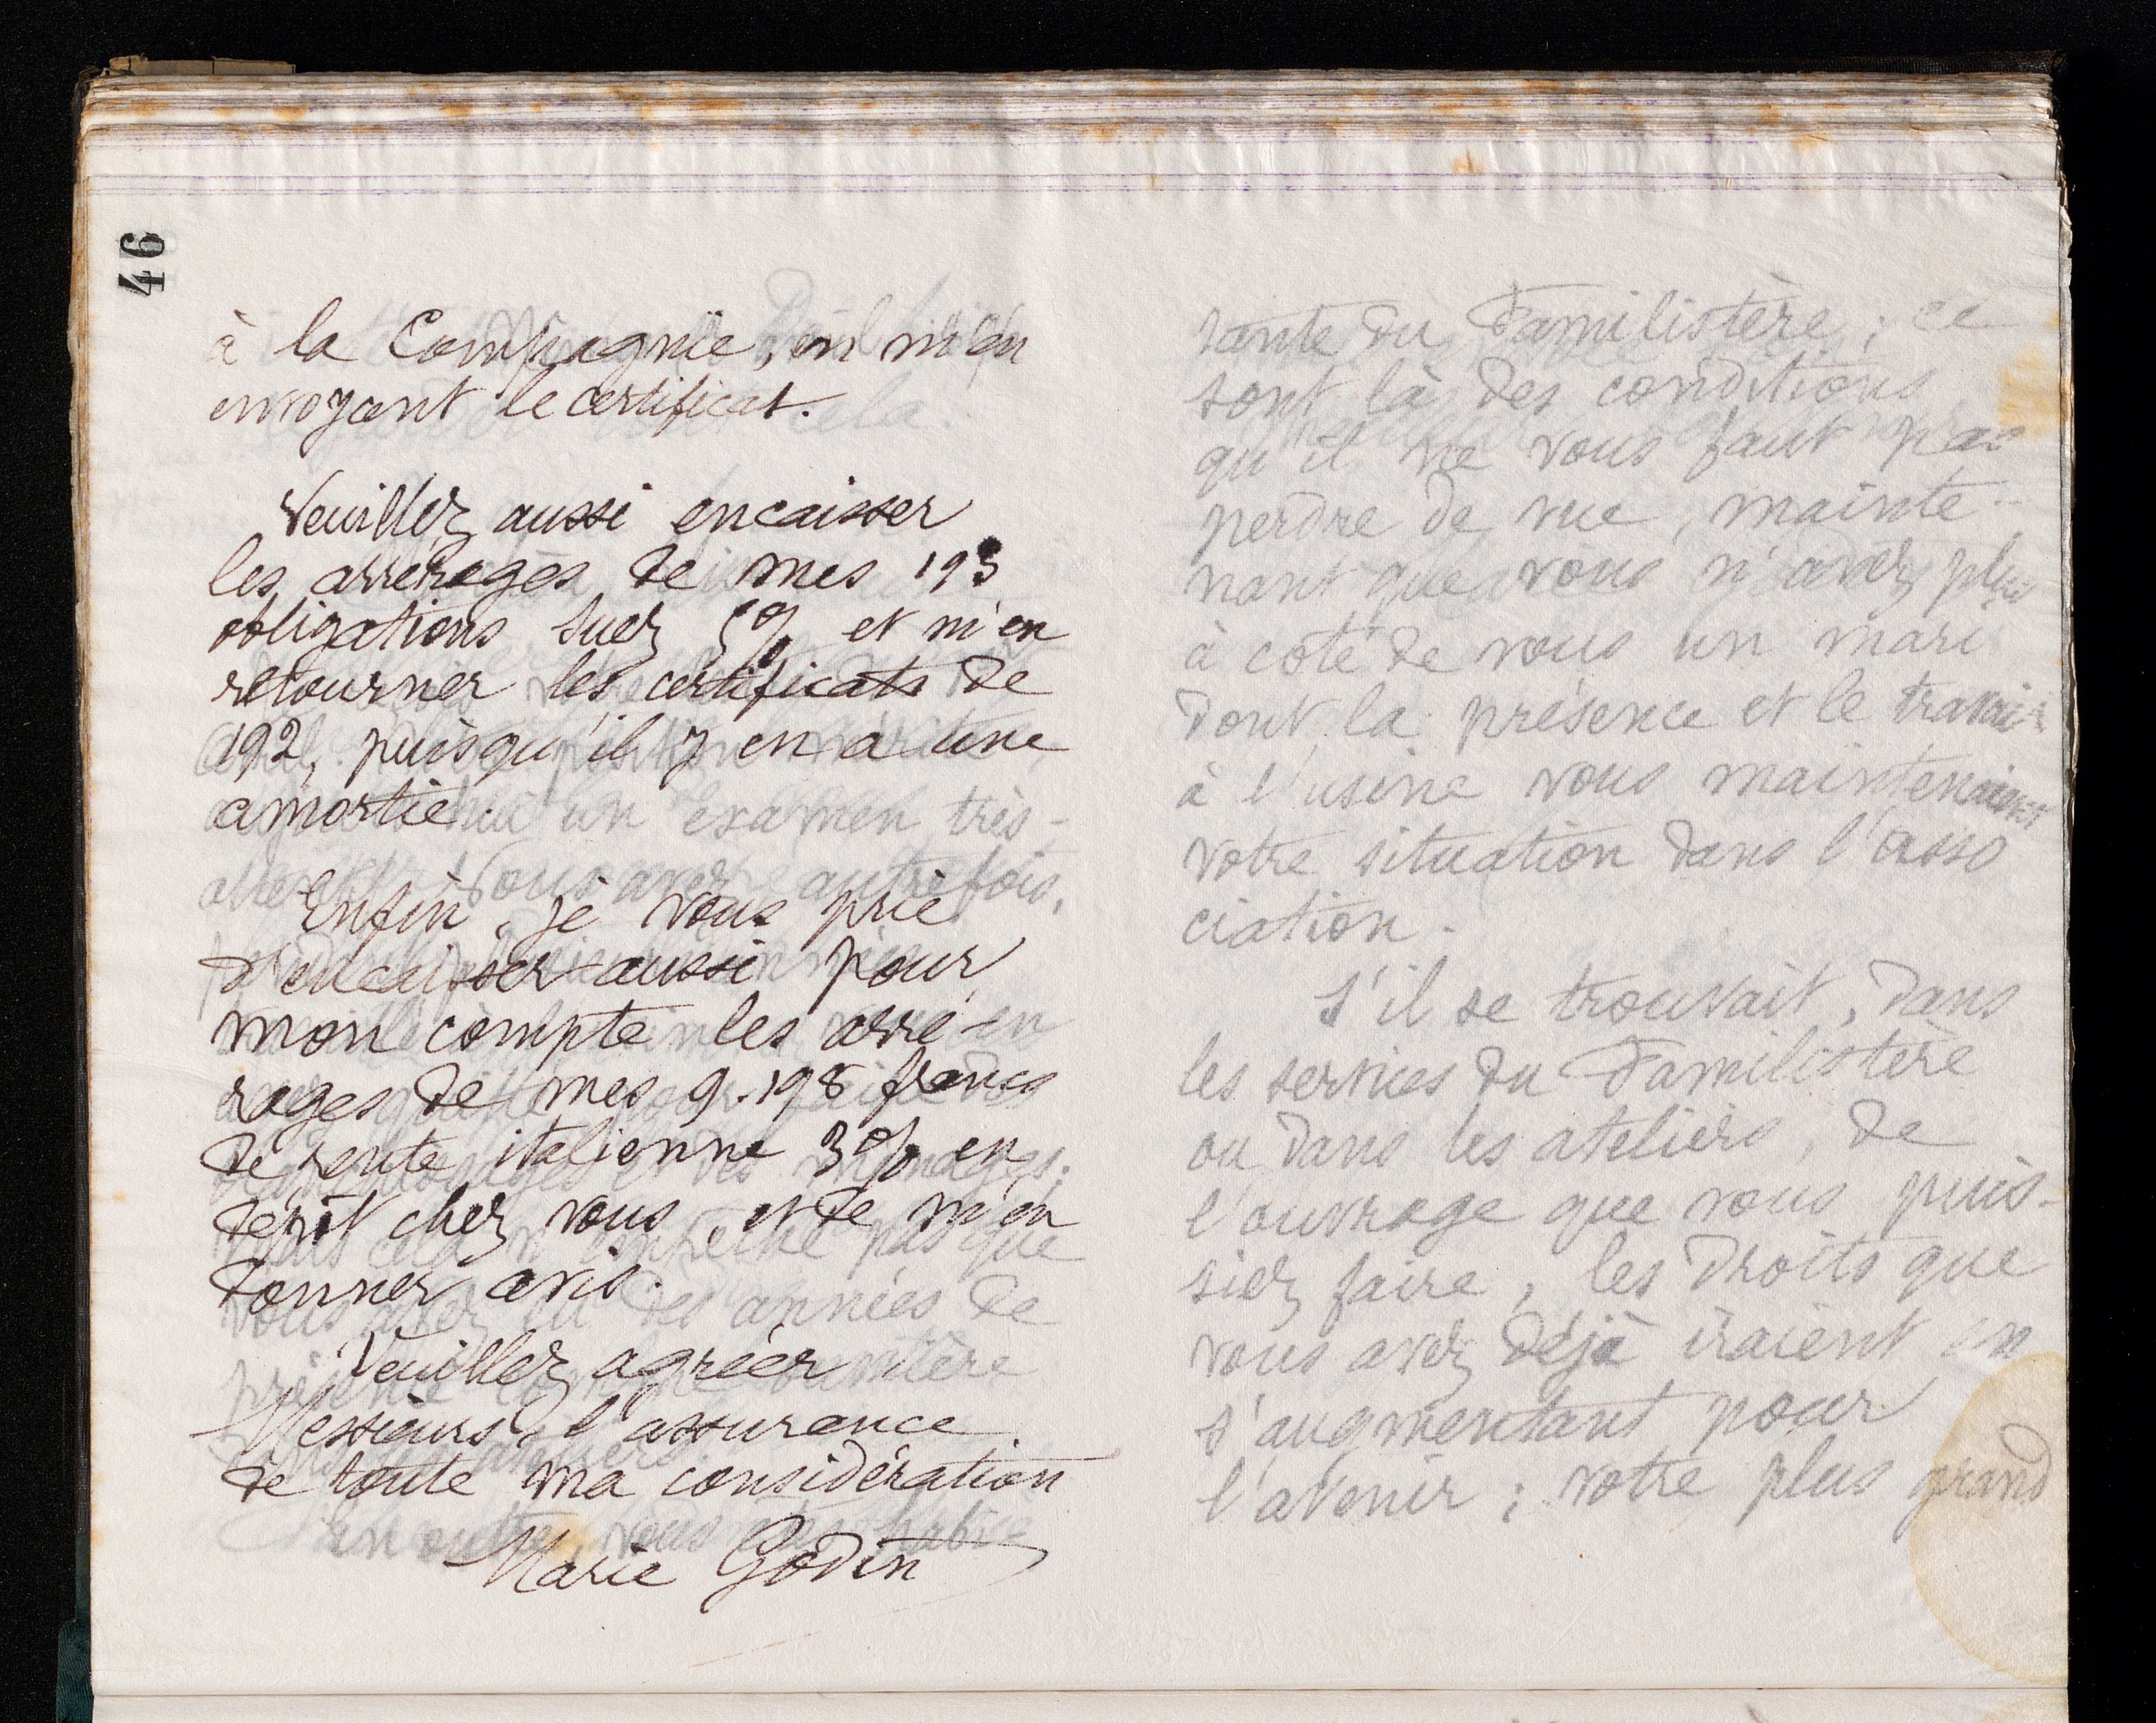 46
à la Compagnie, en m'en
envoyant le certificat.
Veuillez aussi encaisser
les arrérages de mes 193
obligations Suez 5% et m'en
retourner les certificats de
192, puisqu'il y en a une
amortie.
Enfin, je vous prie
d'encaisser aussi pour
mon compte les arré-
rages de mes 9.198 francs
de rente italienne 3% en
dépôt chez vous, et de m'en
donner avis.
Veuillez agréer
Messieurs, l'assurance
de toute ma considération
Marie Godin
tante du Familistère ; ce
sont là des conditions
qu'il ne vous faut pas
perdre de vue, mainte-
nant que vous n'avez plus
à côté de vous un mari
dont la présence et le travail
à l'usine vous maintenaient
votre situation dans l'asso
ciation.
S'il se trouvait, dans
les services du Familistère
ou dans les ateliers, de
l'ouvrage que vous puis-
siez faire, les droits que
vous avez déjà iraient en
s'augmentant pour
l'avenir ; votre plus grand